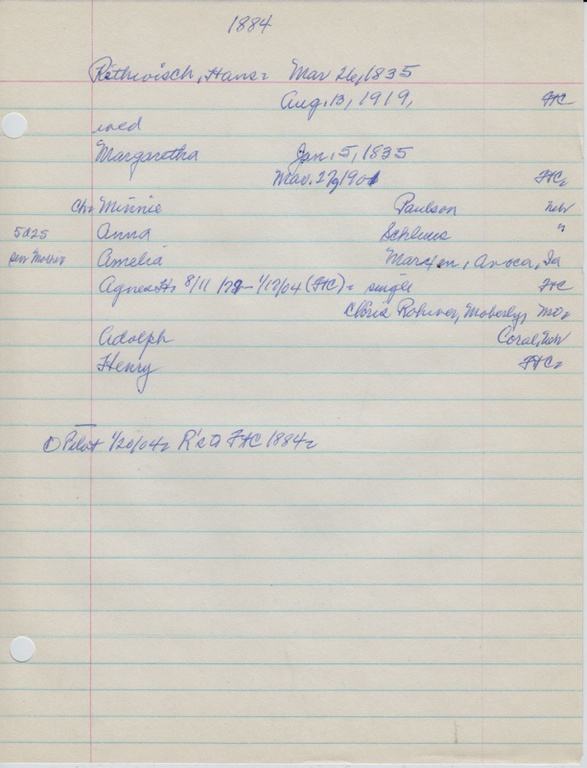 1884
Rethwisch, Hans = Mar 26, 1835
Aug. 13, 1919, FtC
wed
Margaretha Jan. 5, 1835
Mar. 27, 1901 FtC
Ch: Minnie Paulson Neb
5d 2s Anna Schleus "
surv Mother Amelia Marxen, Avoca, Ia
Agnes H. 8/11/78 - 1/17/04 (FtC) = single FtC
Moberly, Mo.
Adolph Coral, Neb
Henry FtC
① Pilot 1/20/04 R's to FtC 1884